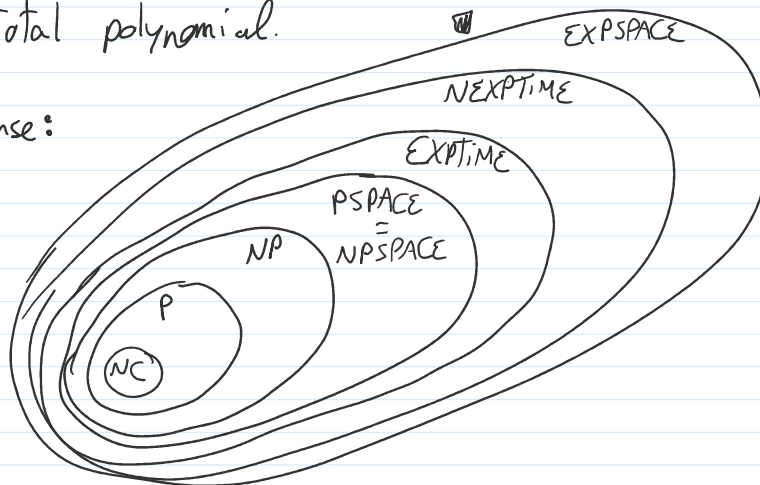 Total polynomial.
EXPSPACE
NEXPTIME
nse:
EXPTIME
PSPACE
=
NPSPACE
NP
P
NC